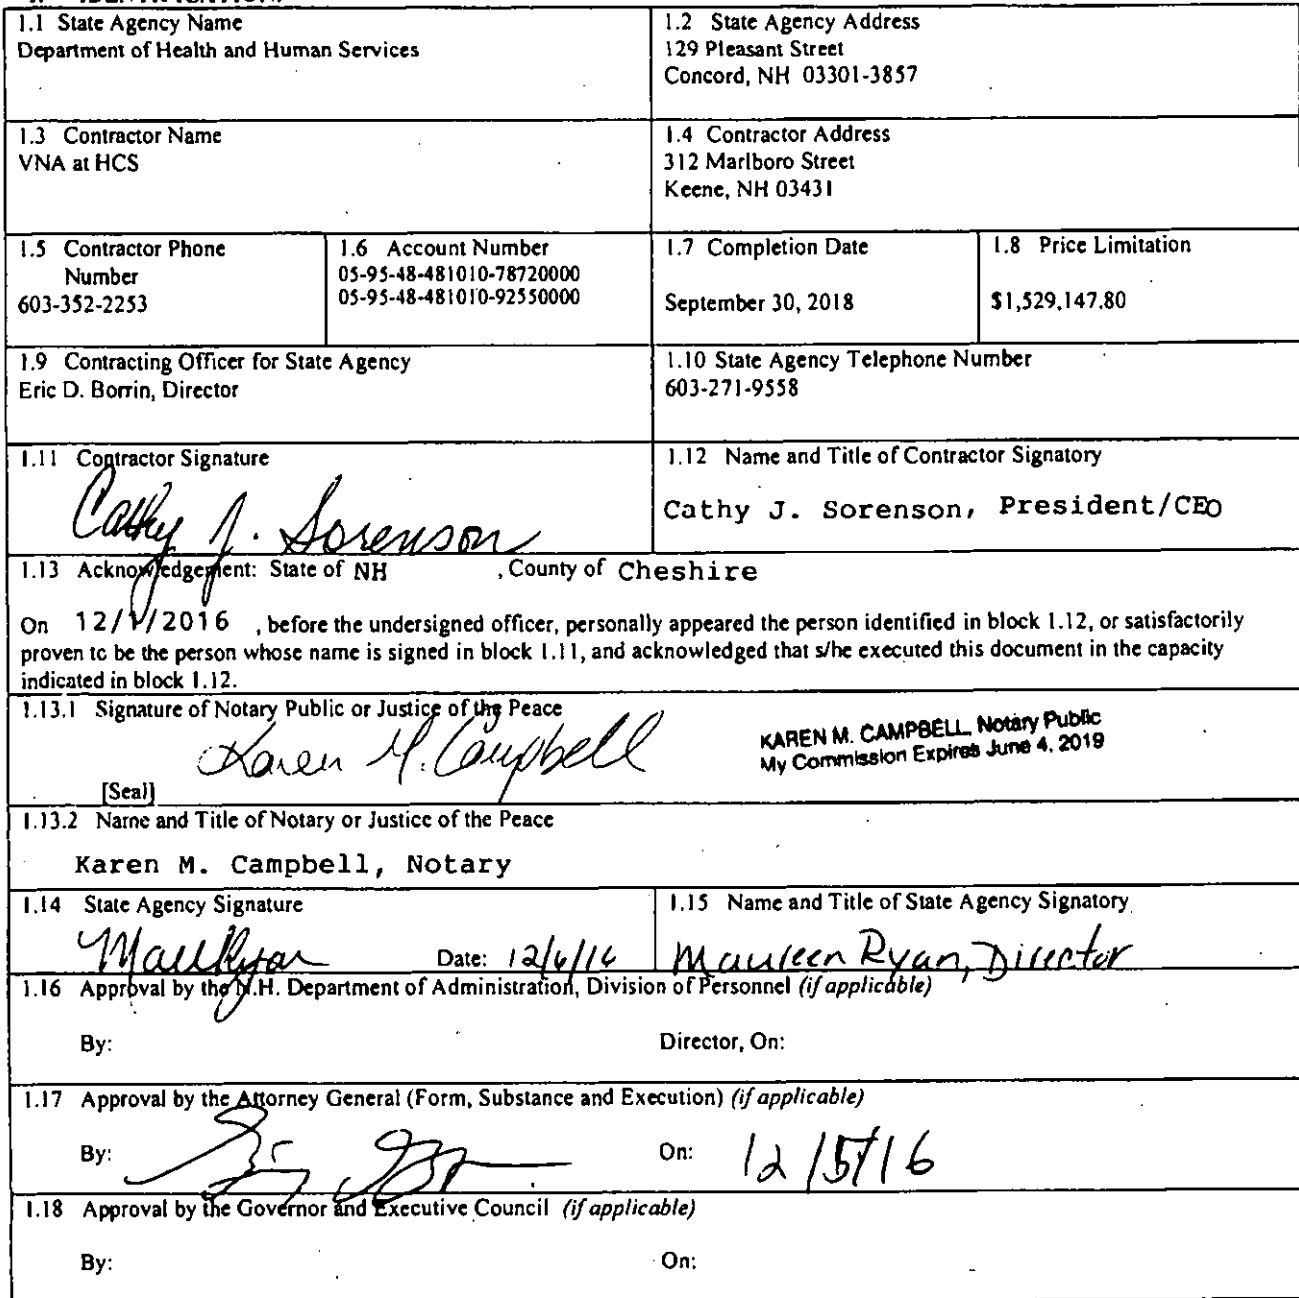 1.1 State Agency Name
Department of Health and Human Services
1.2 State Agency Address
129 Pleasant Street
Concord, NH 03301-3857
1.3 Contractor Name
VNA at HCS
1.4 Contractor Address
312 Marlboro Street
Keene, NH 03431
1.5 Contractor Phone
Number
603-352-2253
1.6 Account Number
05-95-48-481010-78720000
05-95-48-481010-92550000
1.7 Completion Date
September 30, 2018
1.8 Price Limitation
$1,529,147.80
1.9 Contracting Officer for State Agency
Eric D. Borrin, Director
1.10 State Agency Telephone Number
603-271-9558
1.11 Contractor Signature
Cathy J. Sorenson
1.12 Name and Title of Contractor Signatory
Cathy J. Sorenson, President/CEO
1.13 Acknowledgement: State of NH , County of Cheshire
On 12/1/2016 , before the undersigned officer, personally appeared the person identified in block 1.12, or satisfactorily
proven to be the person whose name is signed in block 1.11, and acknowledged that s/he executed this document in the capacity
indicated in block 1.12.
1.13.1 Signature of Notary Public or Justice of the Peace
Karen M. Campbell
KAREN M. CAMPBELL, Notary Public
My Commission Expires June 4, 2019
[Seal]
1.13.2 Name and Title of Notary or Justice of the Peace
Karen M. Campbell, Notary
1.14 State Agency Signature
Date: 12/6/16
1.15 Name and Title of State Agency Signatory
Maureen Ryan, Director
1.16 Approval by the N.H. Department of Administration, Division of Personnel (if applicable)
By: Director, On:
1.17 Approval by the Attorney General (Form, Substance and Execution) (if applicable)
By: On: 12/15/16
1.18 Approval by the Governor and Executive Council (if applicable)
By: On: